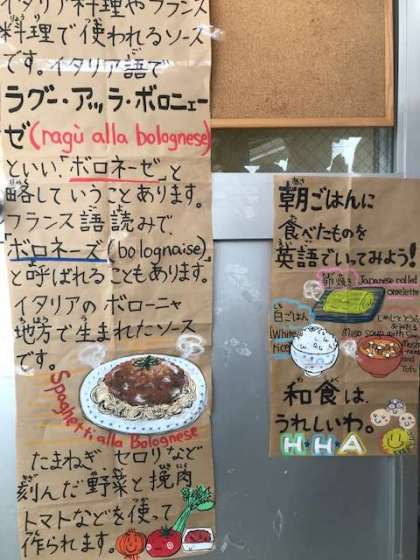 イタリア料理やフランス
料理で使われるソース
です。イタリア語で
ラグー・アッラ・ボロニェー
ゼ(ragù alla bolognese)
といい「ボロネーゼ」と
略していうことあります。
フランス語読みで、
「ボロネーズ(bolognaise)」
と呼ばれることもあります。
イタリアのボローニャ
地方で生まれたソース
です。
Spaghetti alla Bolognese
たまねぎ、セロリなど
刻んだ野菜と挽肉
トマトなどを使って
作られます。
朝ごはんに
食べたものを
英語でいってみよう!
卵焼き Japanese rolled
omelette
白ごはん
(White
rice)
Miso soup with
and
Tofu
和食は、
うれしいわ。
H H A